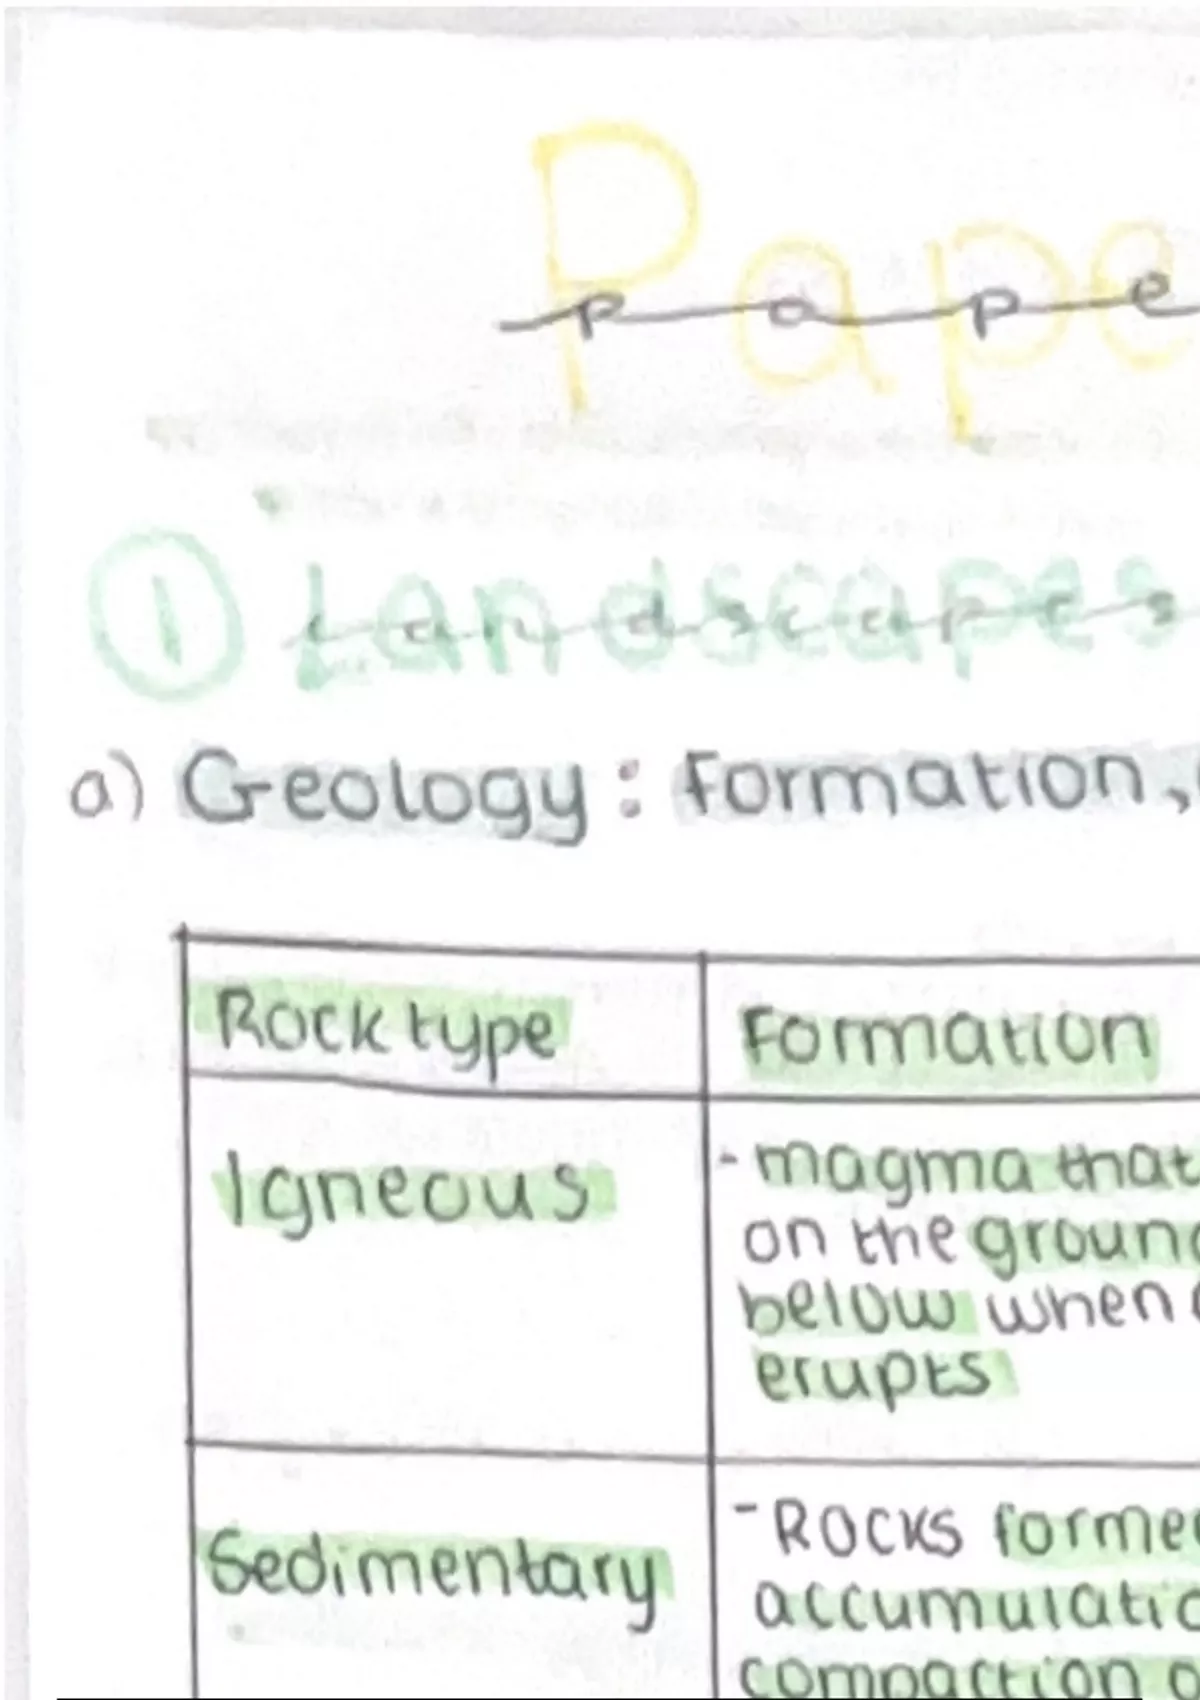 Pape
① Landscapes
a) Geology: Formation,
Rock type
Formation
Igneous
- magma that
on the groun
below when
erupts
Sedimentary
- Rocks forme
accumulatio
compaction o